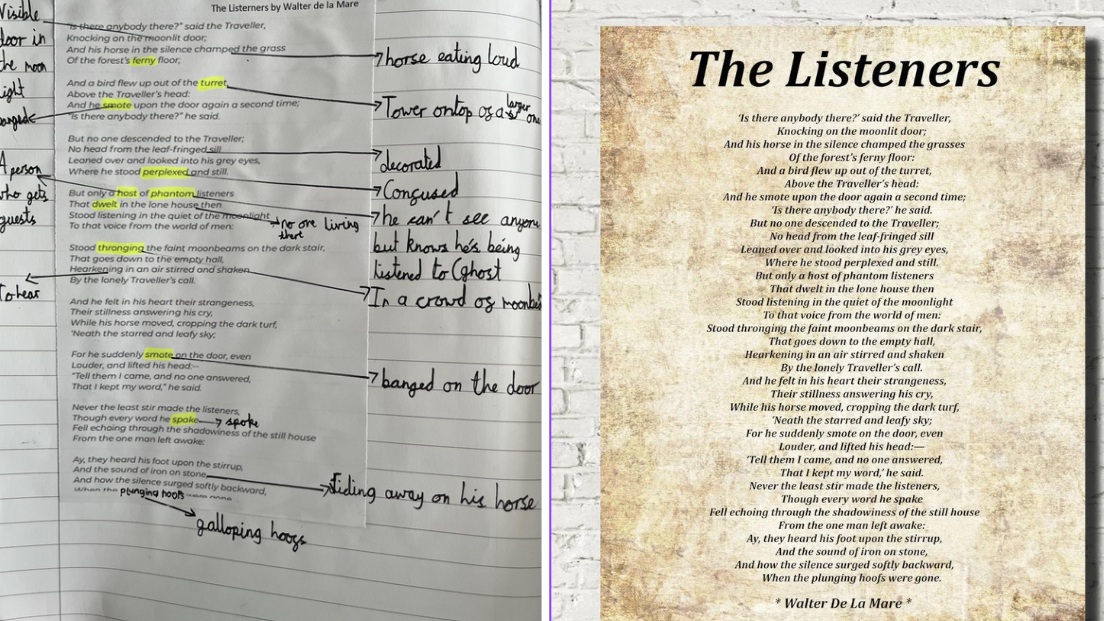 The Listerners by Walter de la Mare
"Is there anybody there?" said the Traveller,
Knocking on the moonlit door;
And his horse in the silence champed the grass
Of the forest's ferny floor;
And a bird flew up out of the turret,
Above the Traveller's head:
And he smote upon the door again a second time;
"Is there anybody there?" he said.
But no one descended to the Traveller;
No head from the leaf-fringed sill
Leaned over and looked into his grey eyes,
Where he stood perplexed and still.
But only a host of phantom listeners
That dwelt in the lone house then
Stood listening in the quiet of the moonlight
To that voice from the world of men:
Stood thronging the faint moonbeams on the dark stair,
That goes down to the empty hall,
Hearkening in an air stirred and shaken
By the lonely Traveller's call.
And he felt in his heart their strangeness,
Their stillness answering his cry,
While his horse moved, cropping the dark turf,
'Neath the starred and leafy sky;
For he suddenly smote on the door, even
Louder, and lifted his head:--
"Tell them I came, and no one answered,
That I kept my word," he said.
Never the least stir made the listeners,
Though every word he spake
Fell echoing through the shadowiness of the still house
From the one man left awake:
Ay, they heard his foot upon the stirrup,
And the sound of iron on stone,
And how the silence surged softly backward,
When the plunging hoofs were gone.
Visible
door in
the moon
light
banged
A person
who gets
guests
To hear
horse eating loud
Tower ontop of a larger one
decorated
Confused
he can't see anyone
but knows he's being
listened to (ghost
no one living
there
In a crowd of
banged on the door
spoke
Riding away on his horse
galloping hoofs
The Listeners
'Is there anybody there?' said the Traveller,
Knocking on the moonlit door;
And his horse in the silence champed the grasses
Of the forest's ferny floor:
And a bird flew up out of the turret,
Above the Traveller's head:
And he smote upon the door again a second time;
'Is there anybody there?' he said.
But no one descended to the Traveller;
No head from the leaf-fringed sill
Leaned over and looked into his grey eyes,
Where he stood perplexed and still.
But only a host of phantom listeners
That dwelt in the lone house then
Stood listening in the quiet of the moonlight
To that voice from the world of men:
Stood thronging the faint moonbeams on the dark stair,
That goes down to the empty hall,
Hearkening in an air stirred and shaken
By the lonely Traveller's call.
And he felt in his heart their strangeness,
Their stillness answering his cry,
While his horse moved, cropping the dark turf,
'Neath the starred and leafy sky;
For he suddenly smote on the door, even
Louder, and lifted his head:—
'Tell them I came, and no one answered,
That I kept my word,' he said.
Never the least stir made the listeners,
Though every word he spake
Fell echoing through the shadowiness of the still house
From the one man left awake:
Ay, they heard his foot upon the stirrup,
And the sound of iron on stone,
And how the silence surged softly backward,
When the plunging hoofs were gone.
* Walter De La Mare *